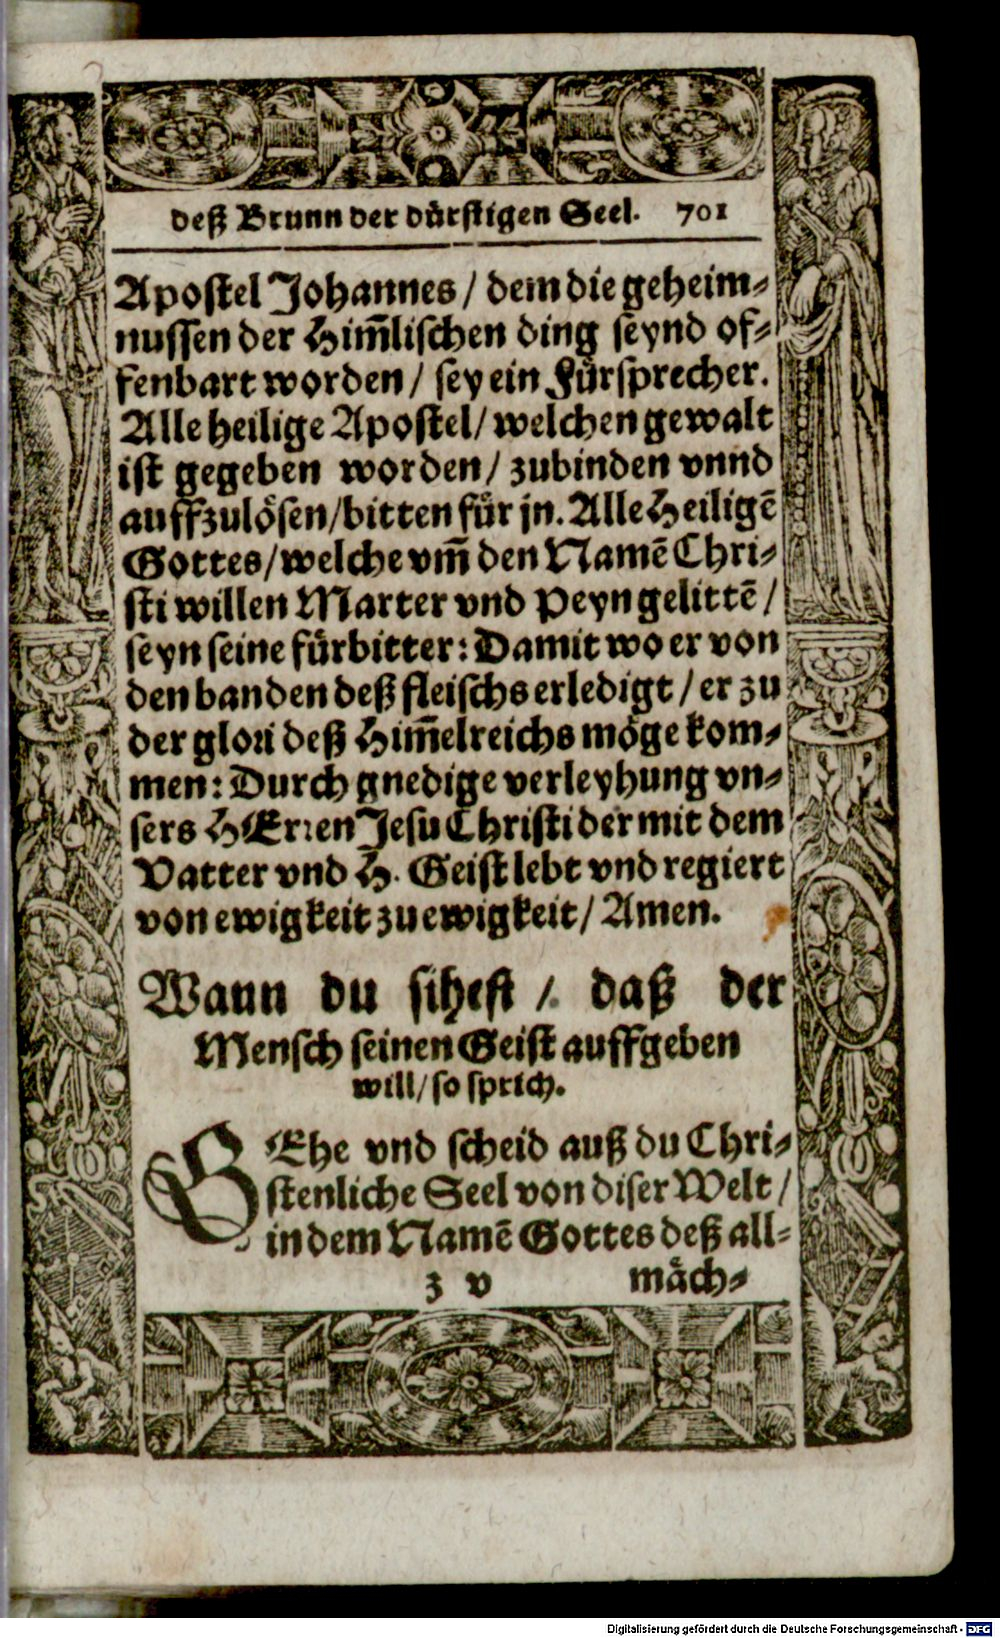 deß Brunn der dürstigen Seel. 701
Apostel Johannes / dem die geheim⸗
nussen der Him̃lischen ding seynd of⸗
fenbart worden / sey ein Fürsprecher.
Alle heilige Apostel / welchen gewalt
ist gegeben worden / zubinden vnnd
auffzulösen / bitten für jn. Alle Heiligẽ
Gottes / welche vm̃ den Namẽ Chri⸗
sti willen Marter vnd Peyn gelittẽ /
seyn seine fürbitter: Damit wo er von
den banden deß fleischs erledigt / er zu
der glori deß Him̃elreichs möge kom⸗
men: Durch gnedige verleyhung vn⸗
sers HErren Jesu Christi der mit dem
Vatter vnd H. Geist lebt vnd regiert
von ewigkeit zu ewigkeit / Amen.
Wann du sihest / daß der
Mensch seinen Geist auffgeben
will / so sprich.
GEhe vnd scheid auß du Chri⸗
stenliche Seel von diser Welt /
in dem Namẽ Gottes deß all⸗
z v mäch⸗
Digitalisierung gefördert durch die Deutsche Forschungsgemeinschaft - DFG